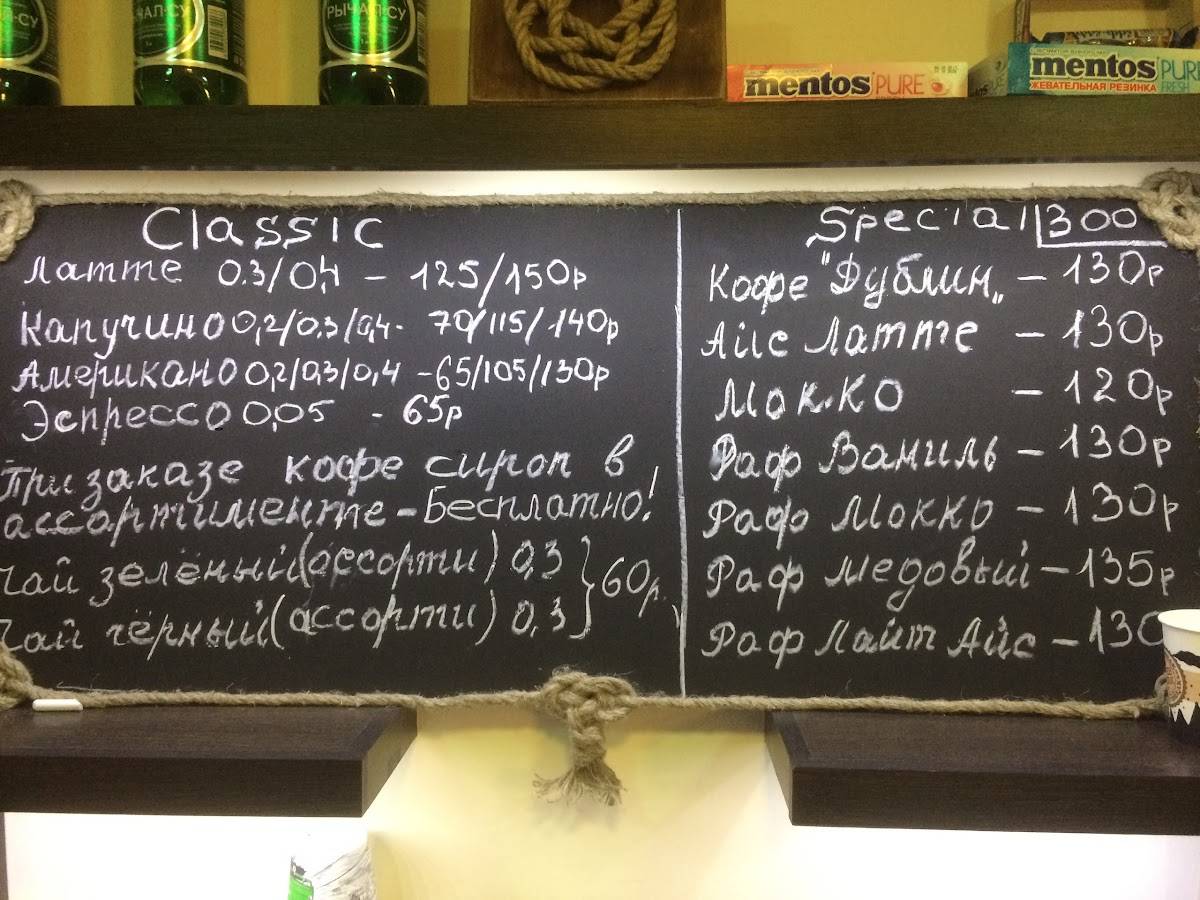 РЫЧАЛ-СУ
РЫЧАЛ-СУ
mentos PURE
mentos PURE
FRESH
ЖЕВАТЕЛЬНАЯ РЕЗИНКА
Classic
Латте 0.3/0,4 - 125/150р
Капучино 0,2/0.3/0,4- 70/115/140р
Американо 0,2/0,3/0,4 -65/105/130р
Эспрессо 0,05 - 65р
При заказе кофе сироп в
ассортименте-Бесплатно!
Чай зелёный(ассорти) 0,3
Чай чёрный(ассорти) 0,3
60р.
Special 300
Кофе "Дублин„ - 130р
Айс Латте - 130р
Мокко - 120р
Раф Ваниль - 130р
Раф Мокко - 130р
Раф Медовый - 135р
Раф Лайт Айс - 130